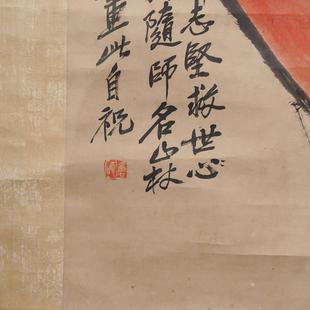 志堅救世心
隨師名山林
重此自祝